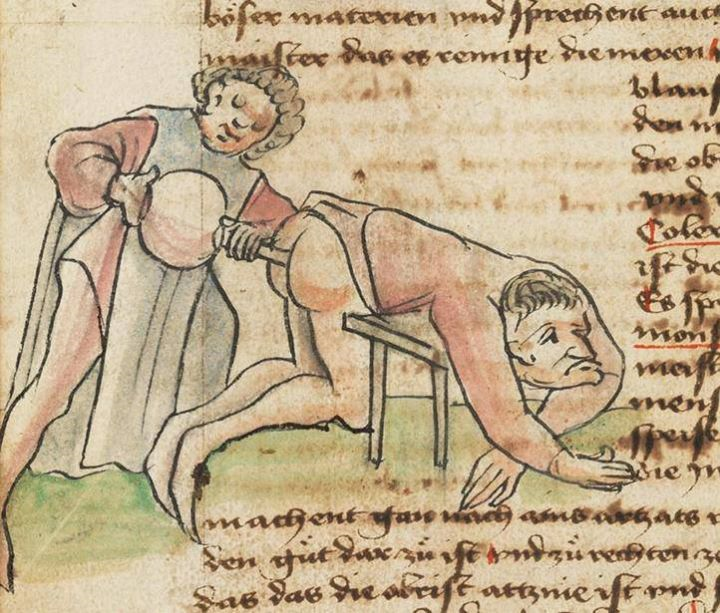 böser materien vnd sprechent auch
maister das es reinige die
blaus
den m
die ob
vnd
Coler
ist die
Es sp
mon
meist
mens
speise
die in
machent gan nach ains artzats
den gůt dar zů ist vnd zů rechten
das das die obrist artznie ist vnd